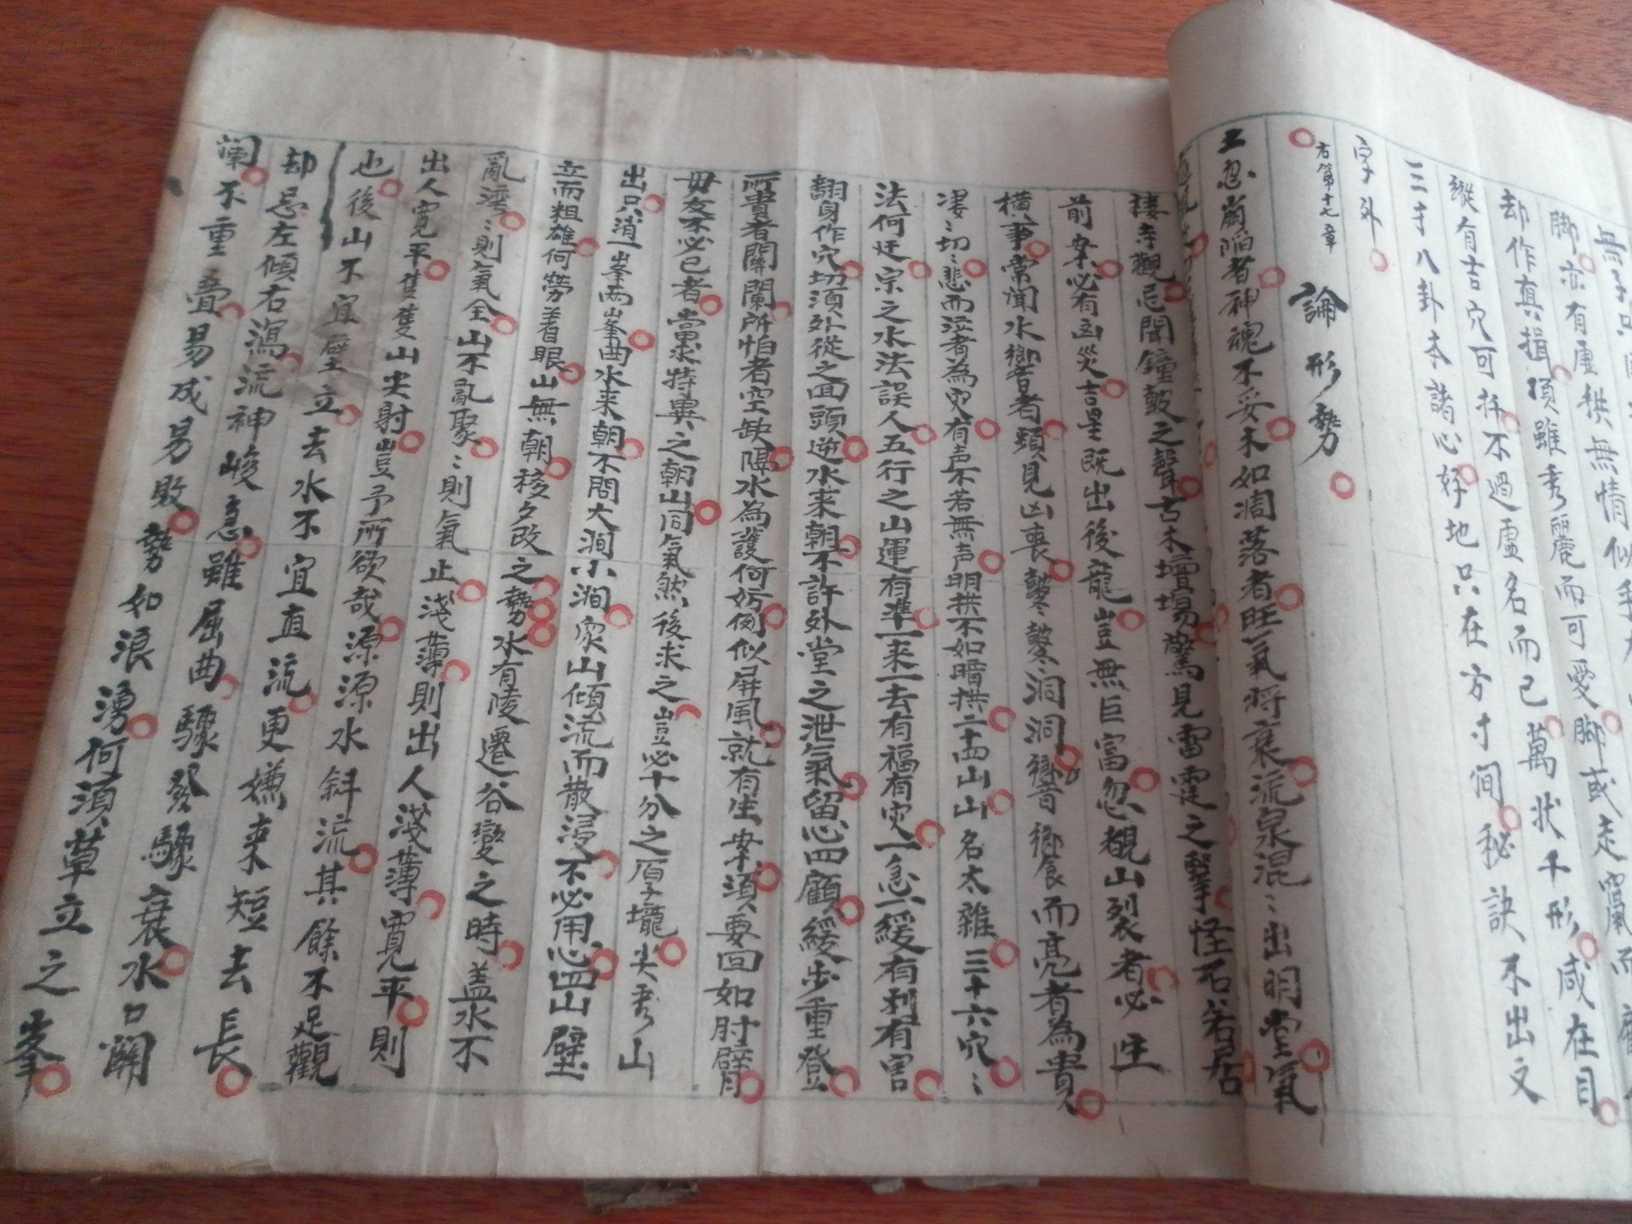 無
脚亦有虛拱無情似手
却作真揖頂雖秀麗而可愛脚或走竄而
縱有吉穴可扦不過虛名而已萬狀千形咸在目
三才八卦本諸心好地只在方寸间秘訣不出文
字外
右第十七章
論形勢
土忽崩陷者神魂不安木如凋落者旺氣將衰流泉混〻出明堂氣
棲寺觀忌聞鐘鼓之聲古木壇場驚見雷霆之擊怪石若居
前案必有凶災吉星既出後龍豈無巨富忽覩山裂者必生
橫事常聞水響者頻見凶喪鼕鼕洞洞響而亮者為貴
凄〻切〻悲而泣者為灾有声不若無声明拱不如暗拱二十四山山名太雜三十六穴〻
法何迂宗之水法誤人五行之山運有準一来一去有福有灾一急一緩有利有害
翻身作穴切須外從之回頭逆水来朝不許外堂之泄氣留心四顧緩步重登
所貴者關闌所怕者空缺隈水為護何妨倒似屏風就有生案須要回如肘臂
毋友不必己者當求特異之朝山同氣然後求之豈必十分之厚壠尖秀山
出只消一峯兩峯曲水来朝不問大澗小澗眾山傾流而散漫不必用心四山壁
立而粗雄何勞着眼山無朝移夕改之勢水有陵遷谷變之時蓋水不
亂灣〻則氣全山不亂聚〻則氣止淺薄則出人淺薄寬平則
出人寬平隻隻山尖射豈予所欲哉源源水斜流其餘不足觀
也後山不宜壁立去水不宜直流更嫌来短去長
却忌左傾右瀉流神峻急雖屈曲驟發驟衰水口關
闌不重疊易成易敗勢如浪湧何須草立之峯